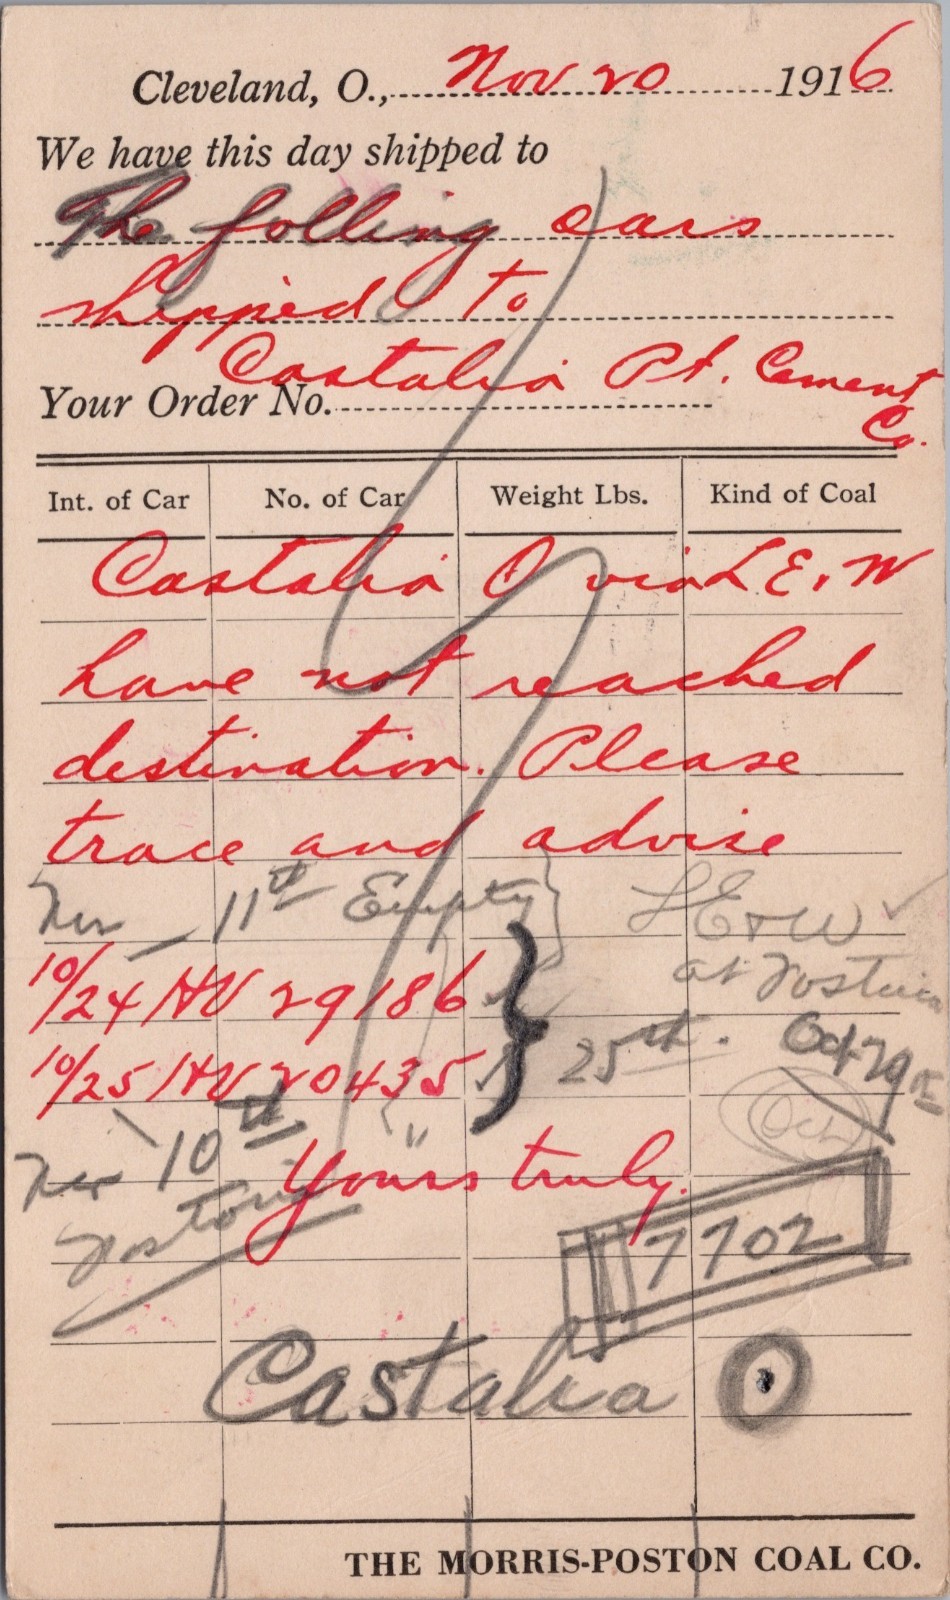 Cleveland, O., Nov 20 1916
We have this day shipped to
The folling cars
shipped to
Castalia Pt. Cement
Your Order No.
Co.
Int. of Car No. of Car Weight Lbs. Kind of Coal
Castalia O via L E. W
have not reached
destination. Please
trace and advise
Nov 11th Empty L E & W
10/24 HV 29186 at Fostoria
10/25 HV 20435 25th. Oct 29
Nov 10th "
Yours truly.
Fostoria 7702
Castalia O
THE MORRIS-POSTON COAL CO.